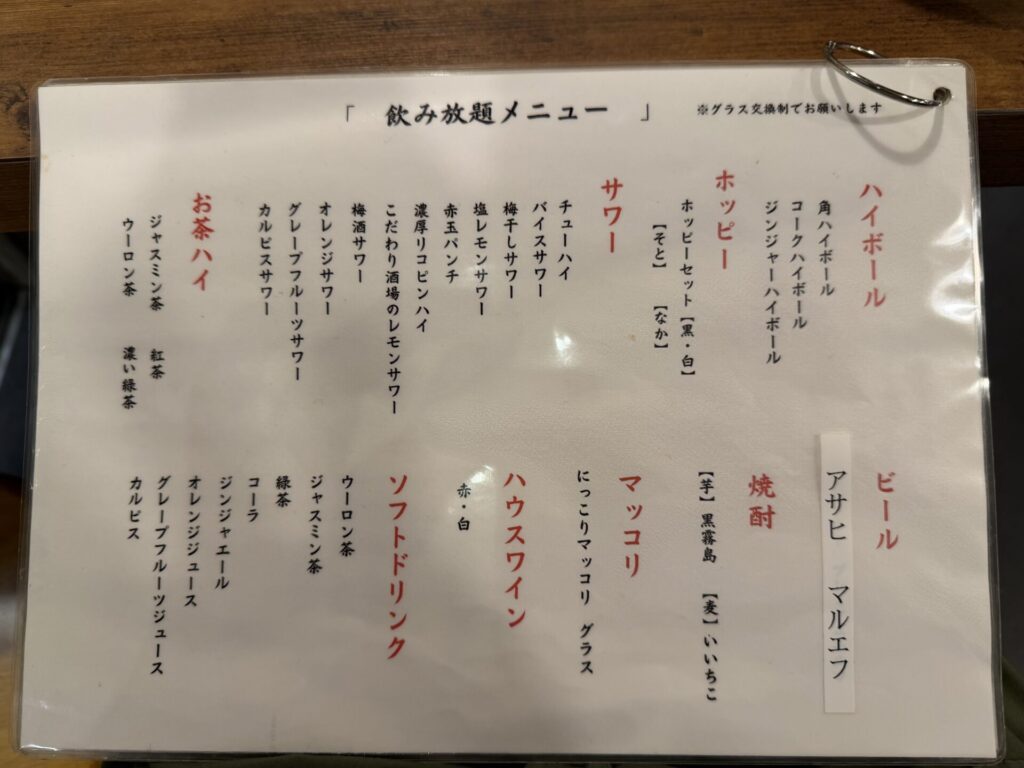 「 飲み放題メニュー 」
※グラス交換制でお願いします
ハイボール
角ハイボール
コークハイボール
ジンジャーハイボール
ホッピー
ホッピーセット【黒・白】
【そと】 【なか】
サワー
チューハイ
バイスサワー
梅干しサワー
塩レモンサワー
赤玉パンチ
濃厚リコピンハイ
こだわり酒場のレモンサワー
梅酒サワー
オレンジサワー
グレープフルーツサワー
カルピスサワー
お茶ハイ
ジャスミン茶 紅茶
ウーロン茶 濃い緑茶
ビール
アサヒ マルエフ
焼酎
【芋】黒霧島 【麦】いいちこ
マッコリ
にっこりマッコリ グラス
ハウスワイン
赤・白
ソフトドリンク
ウーロン茶
ジャスミン茶
緑茶
コーラ
ジンジャエール
オレンジジュース
グレープフルーツジュース
カルピス